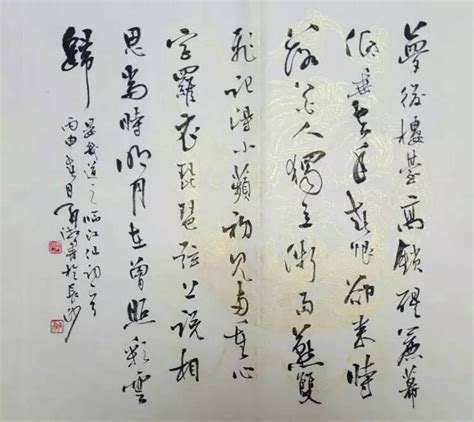 夢後樓臺高鎖醒簾幕
低垂去年春恨卻來時
落花人獨立微雨燕雙
飛記得小蘋初見兩重心
字羅衣琵琶弦上說相
思當時明月在曾照彩雲
歸
晏幾道之临江仙詞一首
丙申春日於長沙